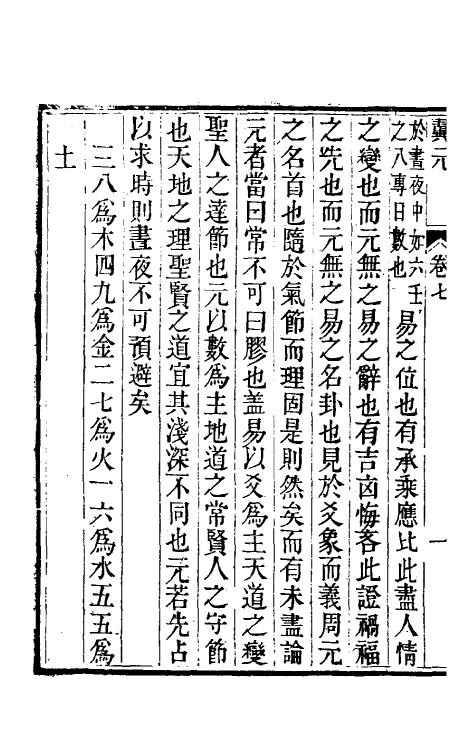 翼元
卷七
一
於晝夜中如六壬
之八專日數也
易之位也有承乘應比此盡人情
之變也而元無之易之辭也有吉凶悔吝此證禍福
之先也而元無之易之名卦也見於爻象而義周元
之名首也隨於氣節而理固是則然矣而有未盡論
元者當曰常不可曰膠也盖易以爻爲主天道之變
聖人之達節也元以數爲主地道之常賢人之守節
也天地之理聖賢之道宜其淺深不同也元若先占
以求時則晝夜不可預避矣
三八爲木四九爲金二七爲火一六爲水五五爲
土